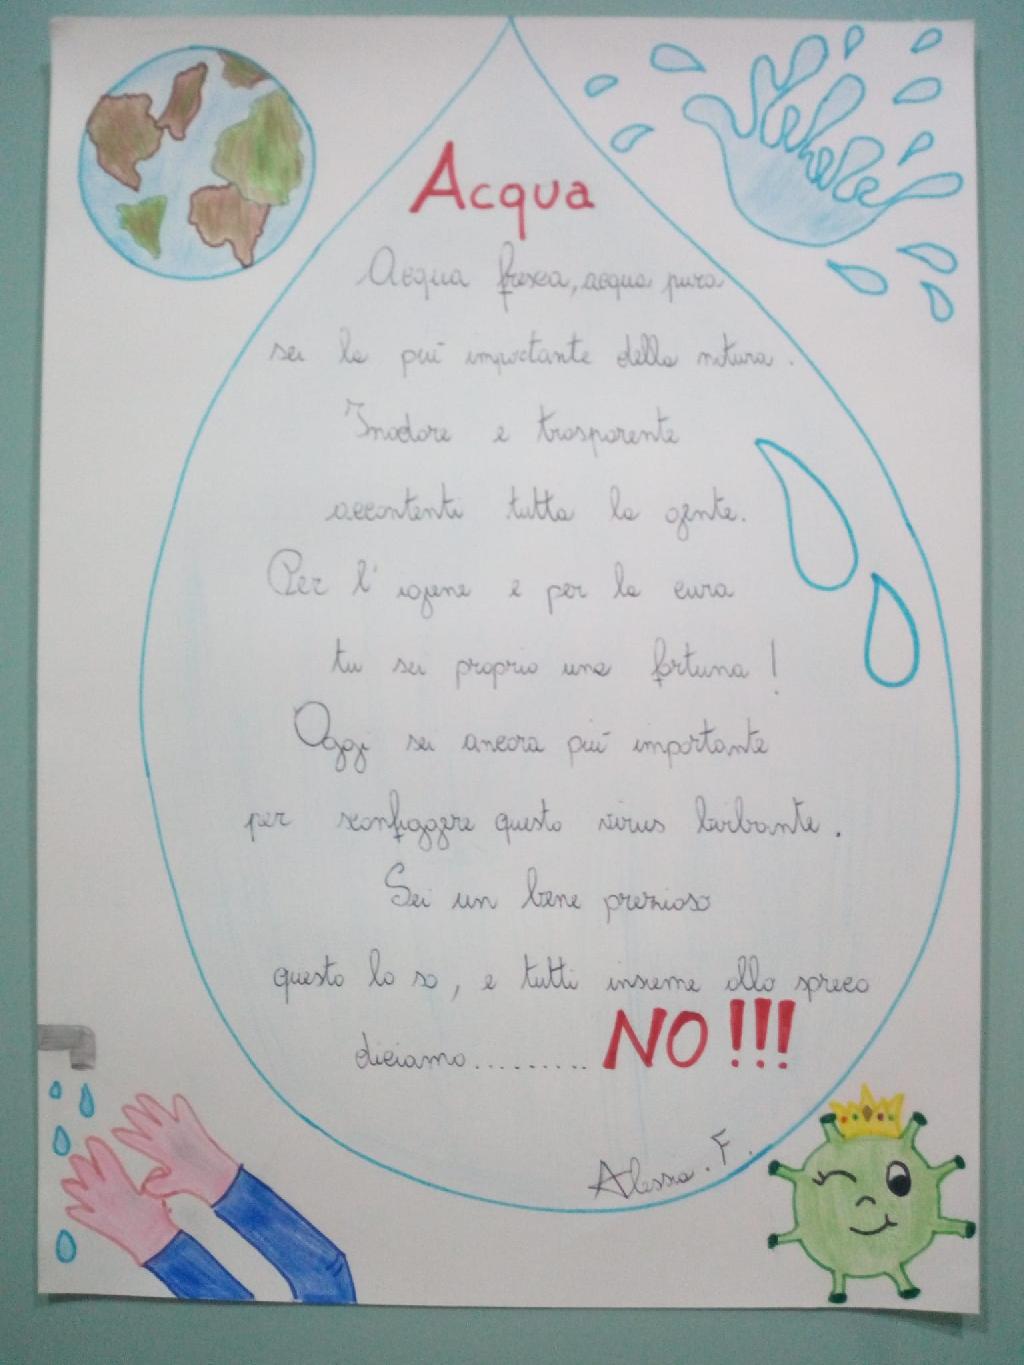 Acqua
Acqua fresca, acqua pura
sei la più importante della natura.
Inodore e trasparente
accontenti tutta la gente.
Per l'igiene e per la cura
tu sei proprio una fortuna!
Oggi sei ancora più importante
per sconfiggere questo virus birbante.
Sei un bene prezioso
questo lo so, e tutti insieme allo spreco
diciamo.......... NO!!!
Alessia. F.